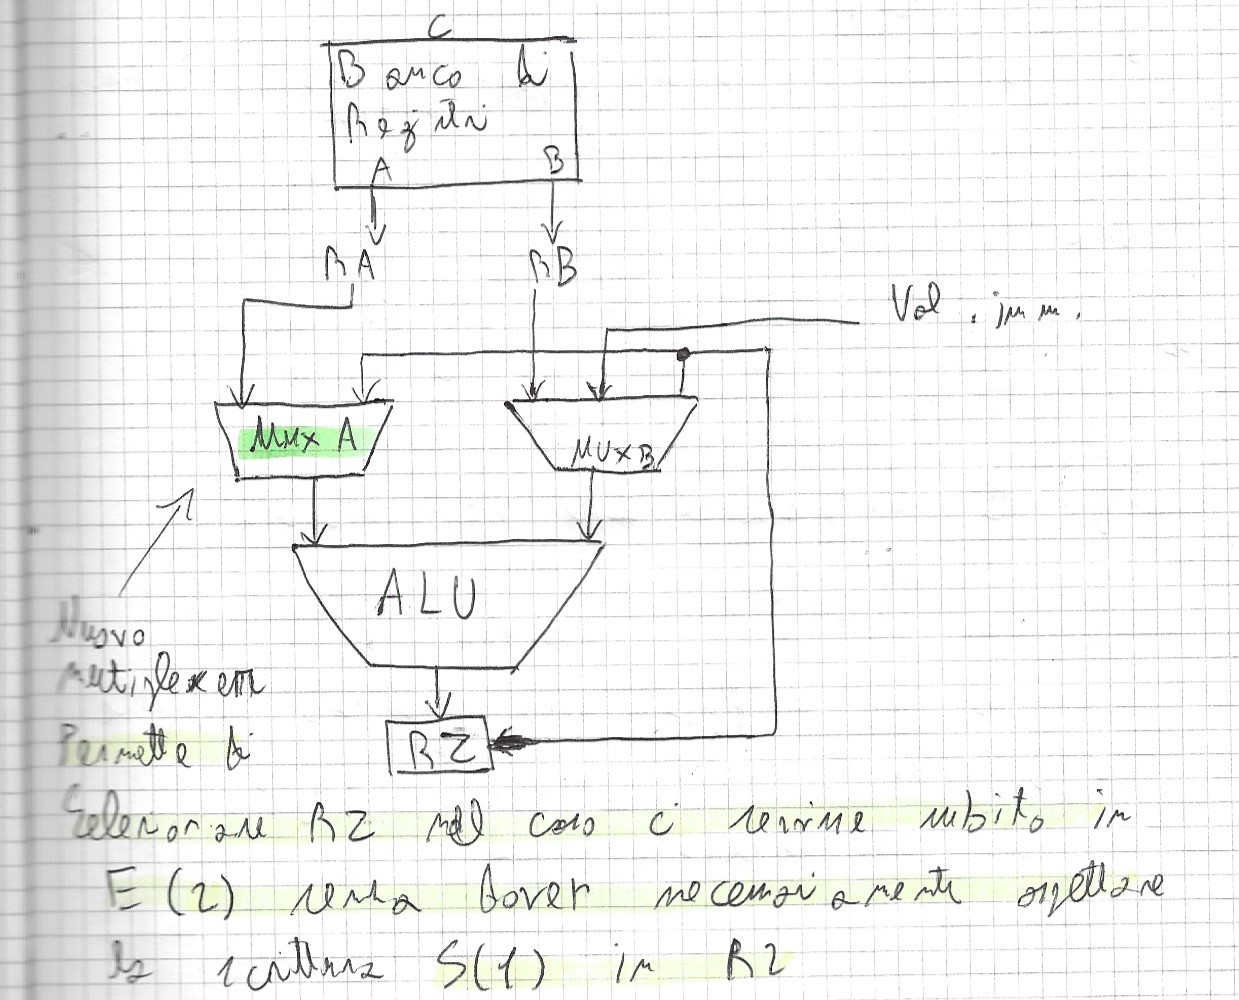 C
Banco di
Registri
A B
RA RB
Val. imm.
Mux A MUXB
ALU
Nuovo
multiplexer
Permette di
RZ
Selezionare RZ nel caso ci servisse subito in
E(2) senza dover necessariamente aspettare
la scrittura S(1) in R2